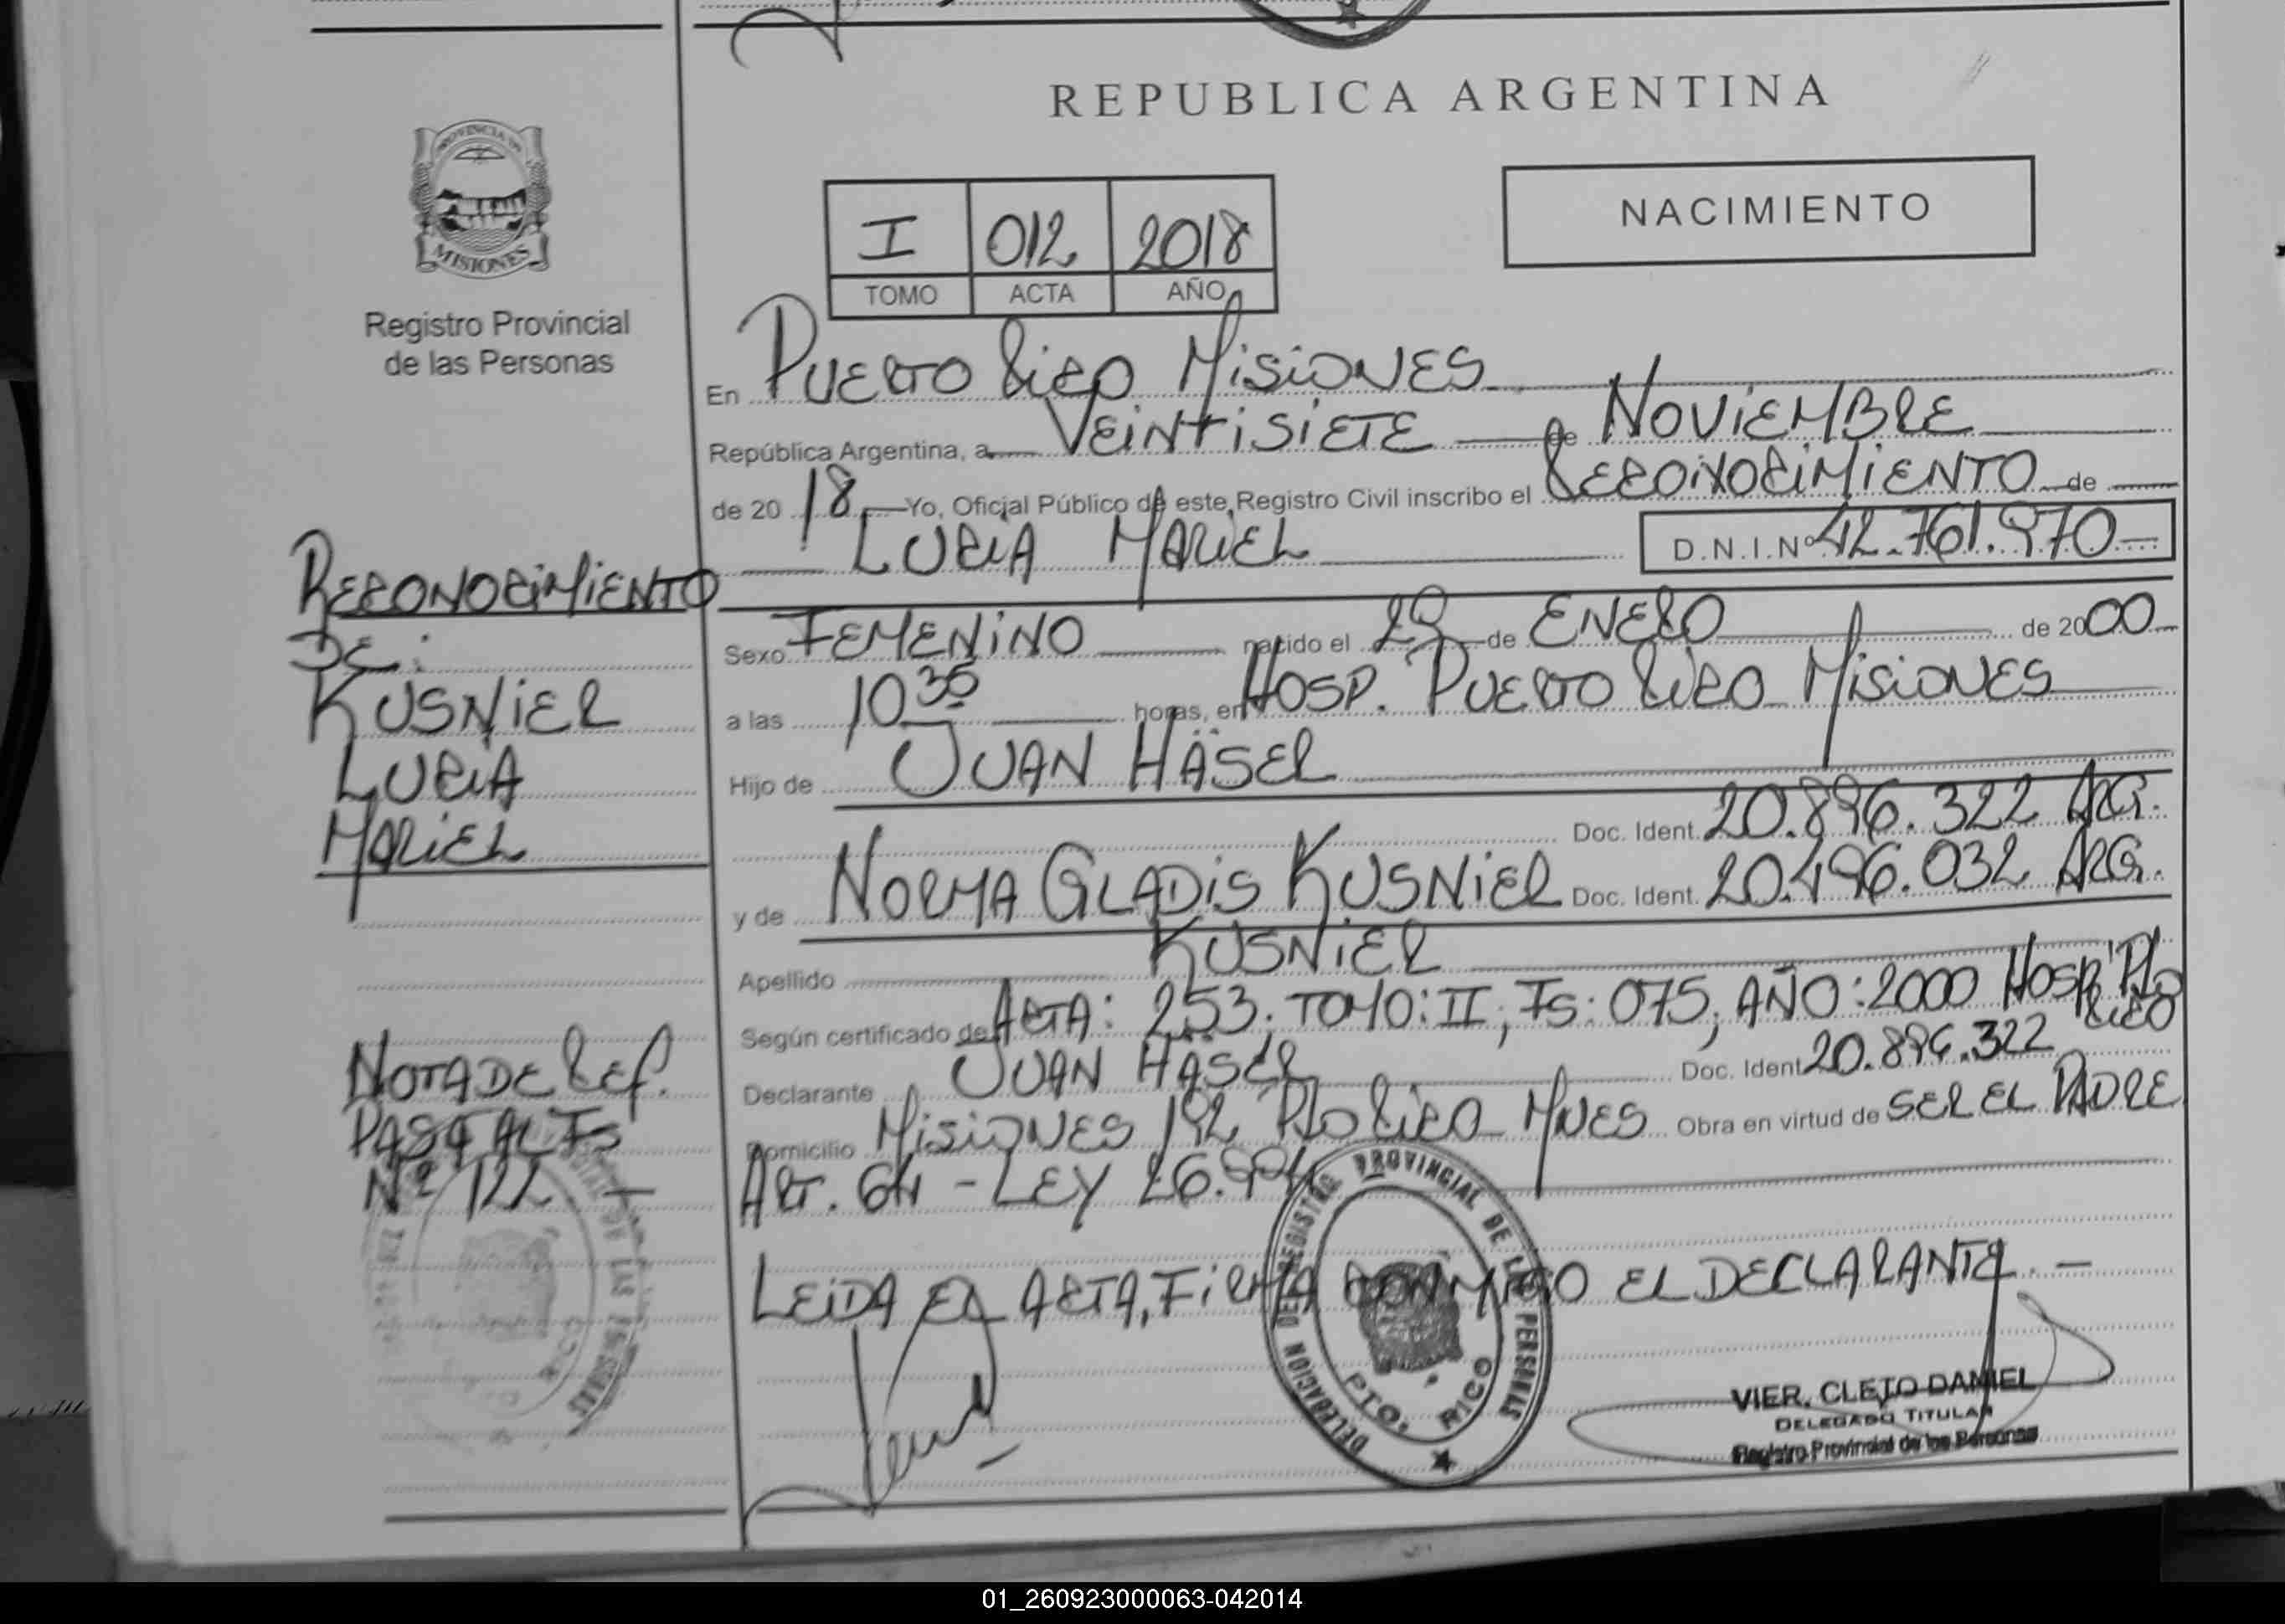 REPUBLICA ARGENTINA
PROVINCIA DE
MISIONES
Registro Provincial
de las Personas
NACIMIENTO
I 012 2018
TOMO ACTA AÑO
En PUERTO RICO MISIONES
República Argentina, a VEINTISIETE de NOVIEMBRE
de 20 18 Yo, Oficial Público de este Registro Civil inscribo el RECONOCIMIENTO de
LUCIA MARIEL D.N.I.Nº 42.761.970
Sexo FEMENINO nacido el 29 de ENERO de 2000
a las 10 30 horas, en HOSP. PUERTO RICO MISIONES
Hijo de JUAN HÄSER
Doc. Ident. 20.896.322 ARG.
y de NORMA GLADIS KUSNIER Doc. Ident. 20.496.032 ARG.
Apellido KUSNIER
Según certificado de ACTA: 253. TOMO: II; Fs: 075; AÑO: 2000 HOSP. Pto RICO
Declarante JUAN HÄSER Doc. Ident 20.896.322
Domicilio MISIONES 192 Pto RICO MNES Obra en virtud de SER EL PADRE
ART. 64 - LEY 26.994
LEIDA EL ACTA, FIRMA CONMIGO EL DECLARANTE. -
RECONOCIMIENTO
DE:
KUSNIER
LUCIA
MARIEL
NOTA DE REF.
PASA AL Fs
Nº 122. -
DELEGACION DEL REGISTRO PROVINCIAL DE LAS PERSONAS
PTO. RICO
VIER, CLETO DANIEL
DELEGADO TITULAR
Registro Provincial de las Personas
01_260923000063-042014